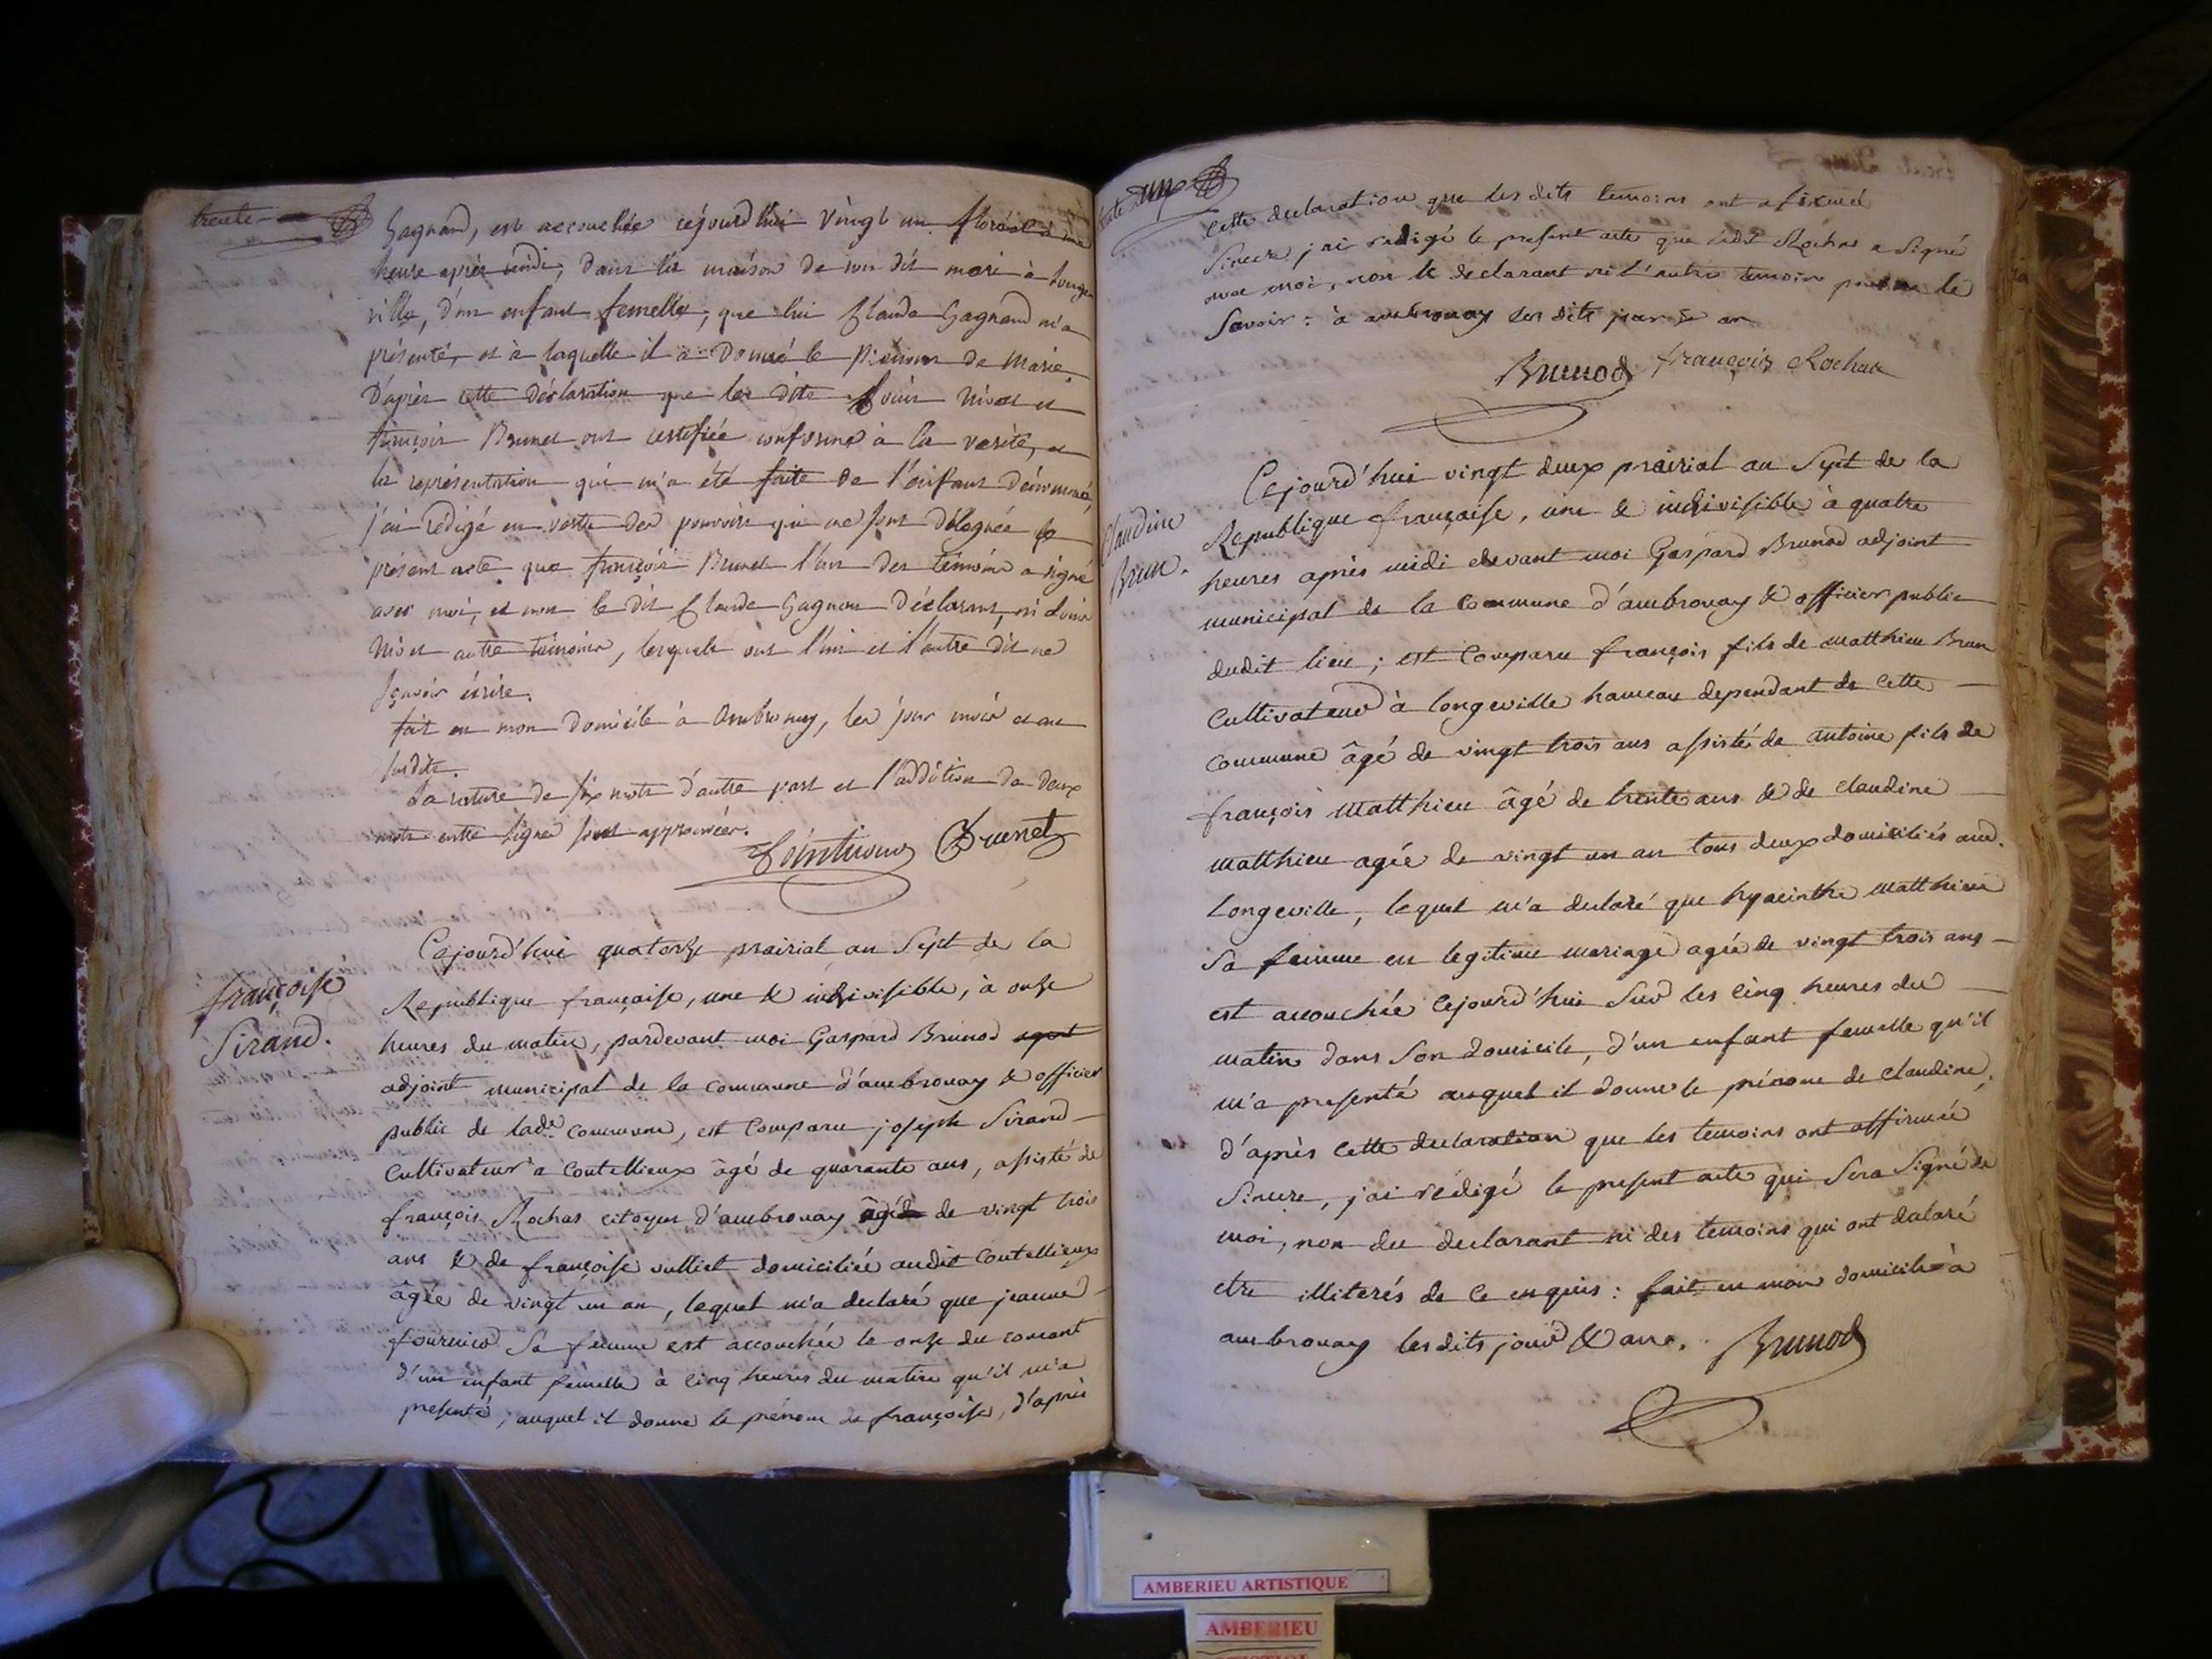 trente
Gagnand, est accouchée cejourd'hui vingt un floréal à une
heure après midi, dans la maison de son dit mari à Longe
ville, d'un enfant femelle, que lui Claude Gagnand m'a
présenté, et à laquelle il a donné le prénom de Marie.
D'après cette déclaration que les dits Louis Nivet et
françois Brunet ont certifiée conforme à la vérité, et
la représentation qui m'a été faite de l'enfant dénommé,
j'ai rédigé en vertu des pouvoirs qui me sont délégués le
présent acte que françois Brunet l'un des témoins a signé
avec moi, et non le dit Claude Gagnand déclarant, ni Louis
Nivet autre témoin, lesquels ont l'un et l'autre dit ne
sçavoir écrire.
fait en mon domicile à Ambronay, les jour mois et an
susdits.
La rature de six mots d'autre part et l'addition de deux
mots entre lignes sont approuvées.
Brunet
françoise
Sirand.
Cejourd'hui quatorze prairial an Sept de la
Republique française, une & indivisible, à onze
heures du matin, pardevant moi Gaspard Brunod agent
adjoint municipal de la commune d'ambronay & officier
public de lade commune, est comparu joseph Sirand
cultivateur a Coutellieux âgé de quarante ans, assisté de
françois Rochas citoyen d'ambronay âgé de vingt trois
ans & de françoise vulliet domiciliée audit Coutellieux
âgée de vingt un an, lequel m'a declaré que jeanne
fournier Sa femme est accouchée le onze du courant
d'un enfant femelle à cinq heures du matin qu'il m'a
presenté; auquel il donne le prénom de françoise, d'après
trente un
cette declaration que les dits temoins ont afirmé
Sincere j'ai redigé le present acte que ledit Rochas a Signé
avec moi, non le declarant ni l'autre temoin pour ne le
Savoir: à ambronay les dits jour & an
Brunod françois Rochas
Claudine
Brun.
Cejourd'hui vingt deux prairial an Sept de la
Republique française, une & indivisible à quatre
heures après midi devant moi Gaspard Brunod adjoint
municipal de la commune d'ambronay & officier public
dudit lieu; est Comparu françois fils de matthieu Brun
Cultivateur à longeville hameau dependant de cette
commune âgé de vingt trois ans assisté de antoine fils de
françois matthieu âgé de trente ans & de claudine
matthieu agée de vingt un an tous deux domiciliés aud.
Longeville, lequel m'a declaré que hyacinthe matthieu
Sa femme en legitime mariage agée de vingt trois ans
est accouchée cejourd'hui Sur les cinq heures du
matin dans Son domicile, d'un enfant femelle qu'il
m'a presenté auquel il donne le prénom de claudine,
d'après cette declaration que les temoins ont affirmée
Sincere, j'ai redigé le present acte qui Sera Signé de
moi, non du declarant ni des temoins qui ont declaré
etre illiterés de ce enquis: fait en mon domicile à
ambronay lesdits jour & an. Brunod
AMBERIEU ARTISTIQUE
AMBERIEU